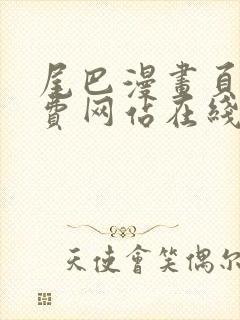 尾巴漫畫頁
費网佔在綫
天使會笑偶尔